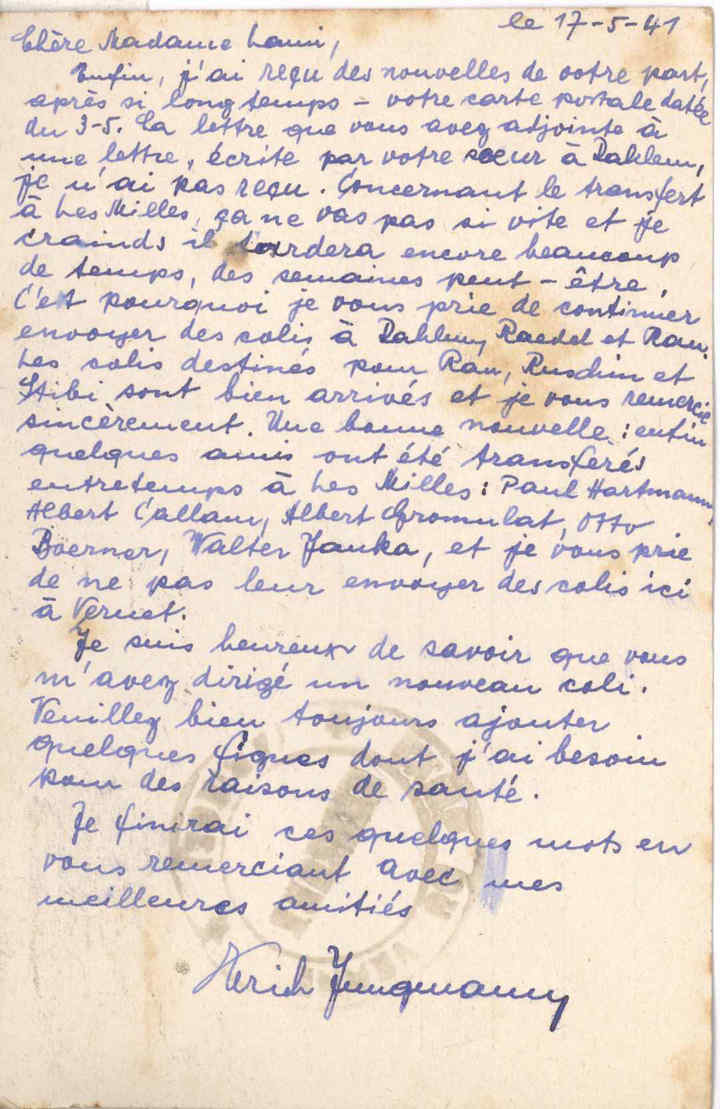 le 17-5-41
Chère Madame Lanni,
Enfin, j'ai reçu des nouvelles de votre part,
après si longtemps – votre carte postale datée
du 3-5. La lettre que vous avez adjointe à
une lettre, écrite par votre soeur à Dahlem,
je n'ai pas reçu. Concernant le transfert
à Les Milles, ça ne vas pas si vite et je
crainds il tardera encore beaucoup
de temps, des semaines peut-être.
C'est pourquoi je vous prie de continuer
envoyer des colis à Dahlem, Raedel et Rau.
Les colis destinés pour Rau, Ruschin et
Stibi sont bien arrivés et je vous remercie
sincèrement. Une bonne nouvelle: enfin
quelques amis ont été transferés
entretemps à Les Milles: Paul Hartmann,
Albert Callam, Albert Gromulat, Otto
Boerner, Walter Janka, et je vous prie
de ne pas leur envoyer des colis ici
à Vernet.
Je suis heureux de savoir que vous
m'avez dirigé un nouveau coli.
Veuillez bien toujours ajouter
quelques figues dont j'ai besoin
pour des raisons de santé.
Je finirai ces quelques mots en
vous remerciant avec mes
meilleures amitiés
Herich Jungmann